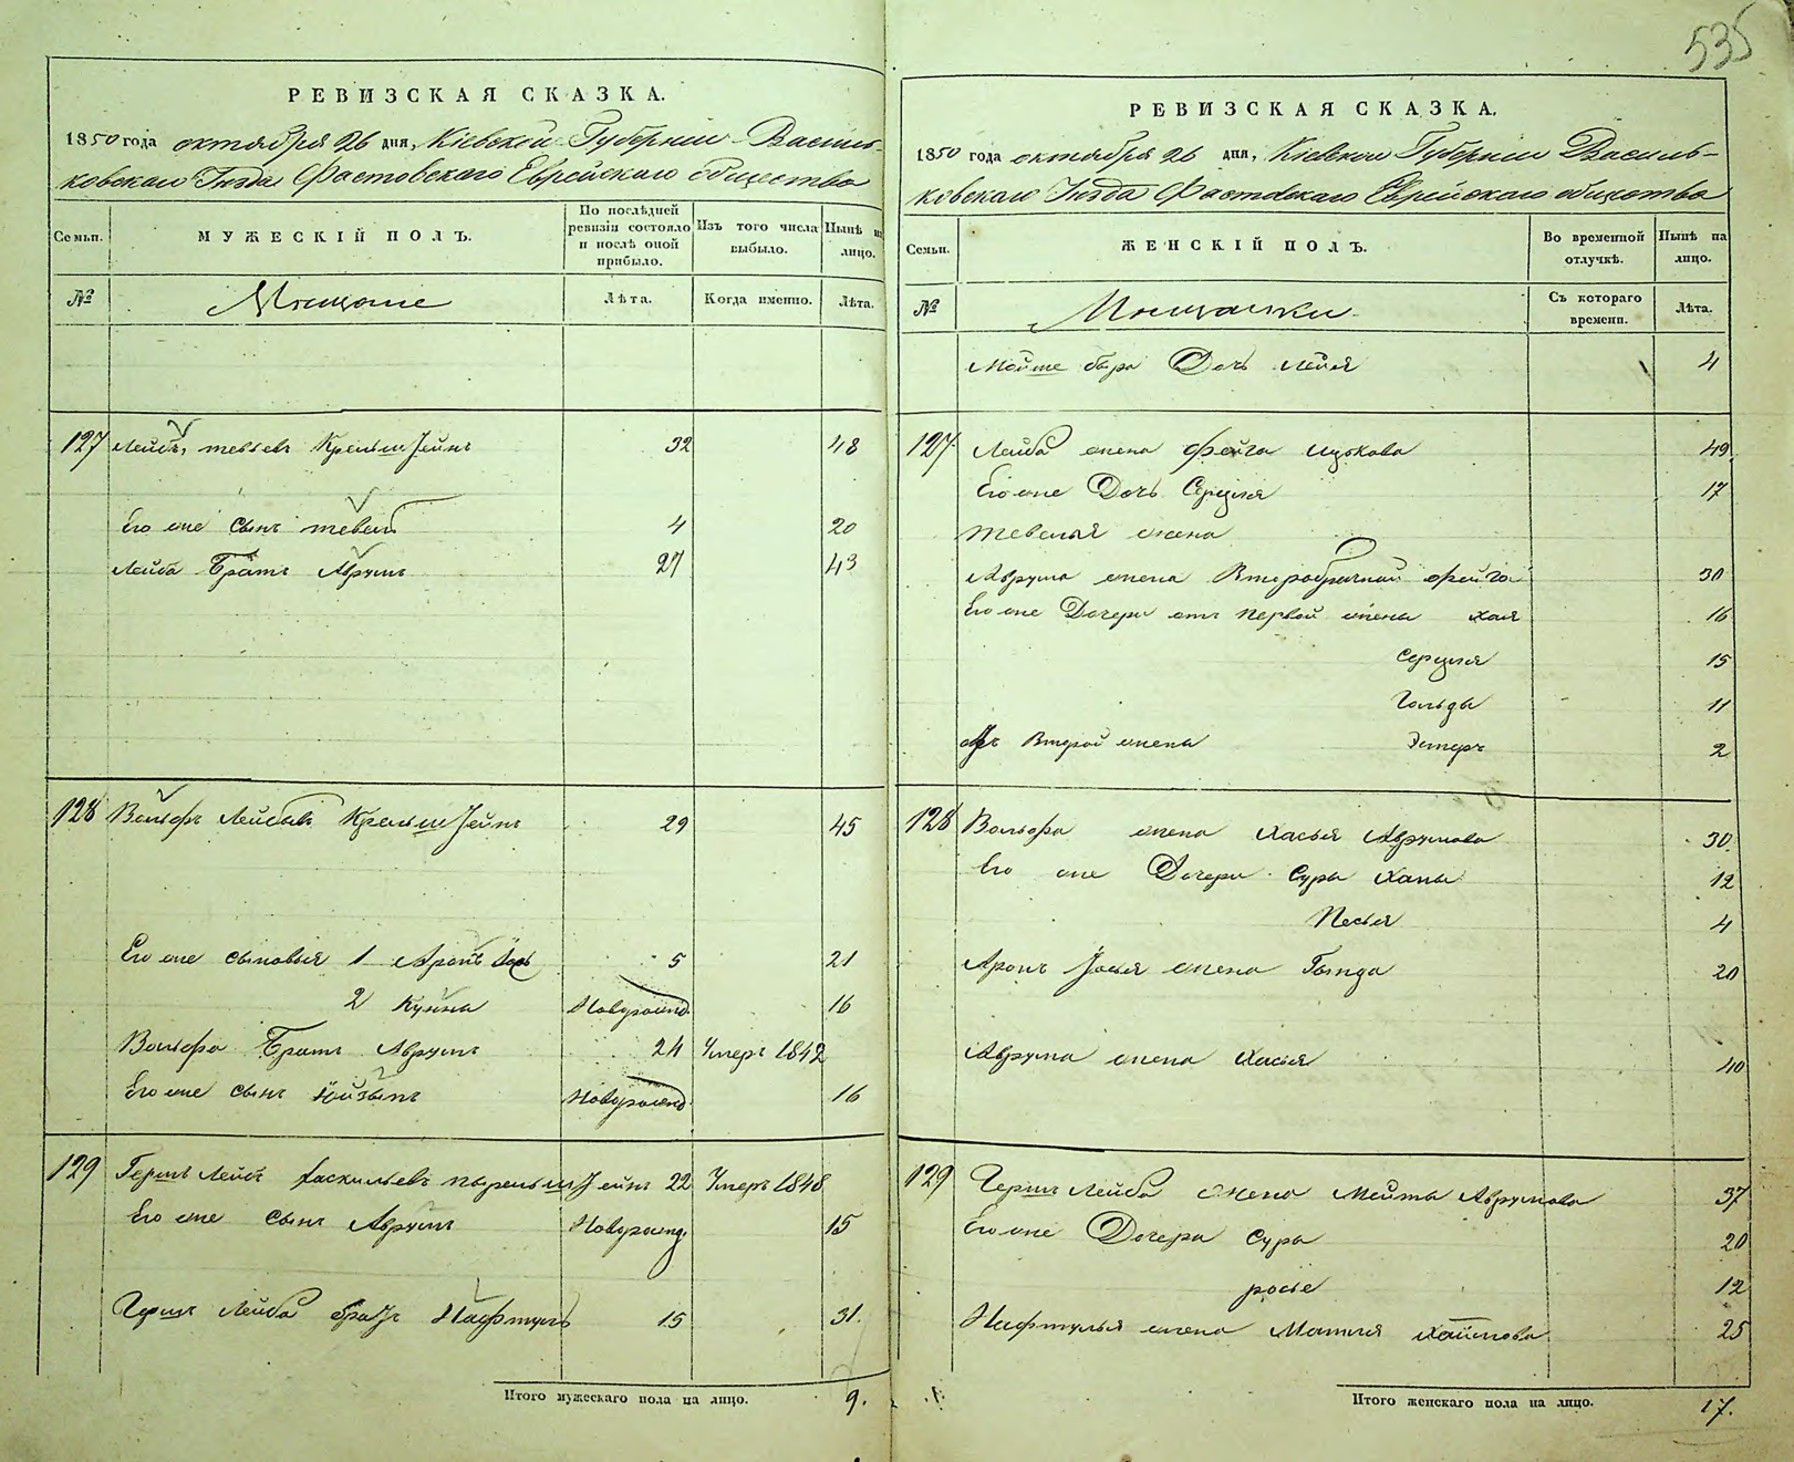 535
РЕВИЗСКАЯ СКАЗКА.
1850 года октября 26 дня, Кіевской Губерніи Василь-
ковскаго Уѣзда Фастовскаго Еврейскаго общества
Семьи.
МУЖЕСКІЙ ПОЛЪ.
По послѣдней ревизіи состояло и послѣ оной прибыло.
Изъ того числа выбыло.
Нынѣ на лицо.
№
Мѣщане
Лѣта.
Когда именно.
Лѣта.
127 Лейбъ, тевьевъ Крельштейнъ 32 48
Его же сынъ тевель 4 20
Лейба Братъ Аврумъ 27 43
128 Вольфъ Лейбовъ Крельштейнъ 29 45
Его же сыновья 1 Аронъ Іось 5 21
2 Кунна Новорожд. 16
Вольфа Братъ Аврумъ 24 Умеръ 1842
Его же сынъ Новорожд. 16
129 Гершъ Лейбъ Хаскильевъ 22 Умеръ 1848
Его же Сынъ Аврумъ Новорожд. 15
Гершъ Лейба братъ Нафтула 15 31.
Итого мужескаго пола на лицо. 9.
РЕВИЗСКАЯ СКАЗКА.
1850 года октября 26 дня, Кіевской Губерніи Василь-
ковскаго Уѣзда Фастовскаго Еврейскаго общества
Семьи.
ЖЕНСКІЙ ПОЛЪ.
Во временной отлучкѣ.
Нынѣ на лицо.
№
Мѣщанки
Съ котораго времени.
Лѣта.
Мойше бера Дочь Лейя 4
127. Лейба жена Фейга Ицькова 49
Его же Дочь Серуля 17
Тевеля жена
Аврума жена Второбрачная Фейга 30
Его же Дочери отъ первой жены Хая 16
Серуля 15
Гольда 11
отъ Второй жены Эстеръ 2
128 Вольфа жена Хасья Аврумова 30
Его же Дочери Сура Хана 12
Песья 4
Аронъ Іося жена Гинда 20
Аврума жена Хасья 40
129 Гершъ Лейба жена Мейта Аврумова 37
Его же Дочери Сура 20
росье 12
Нафтулы жена Матля Хаимова 25
Итого женскаго пола на лицо. 17.